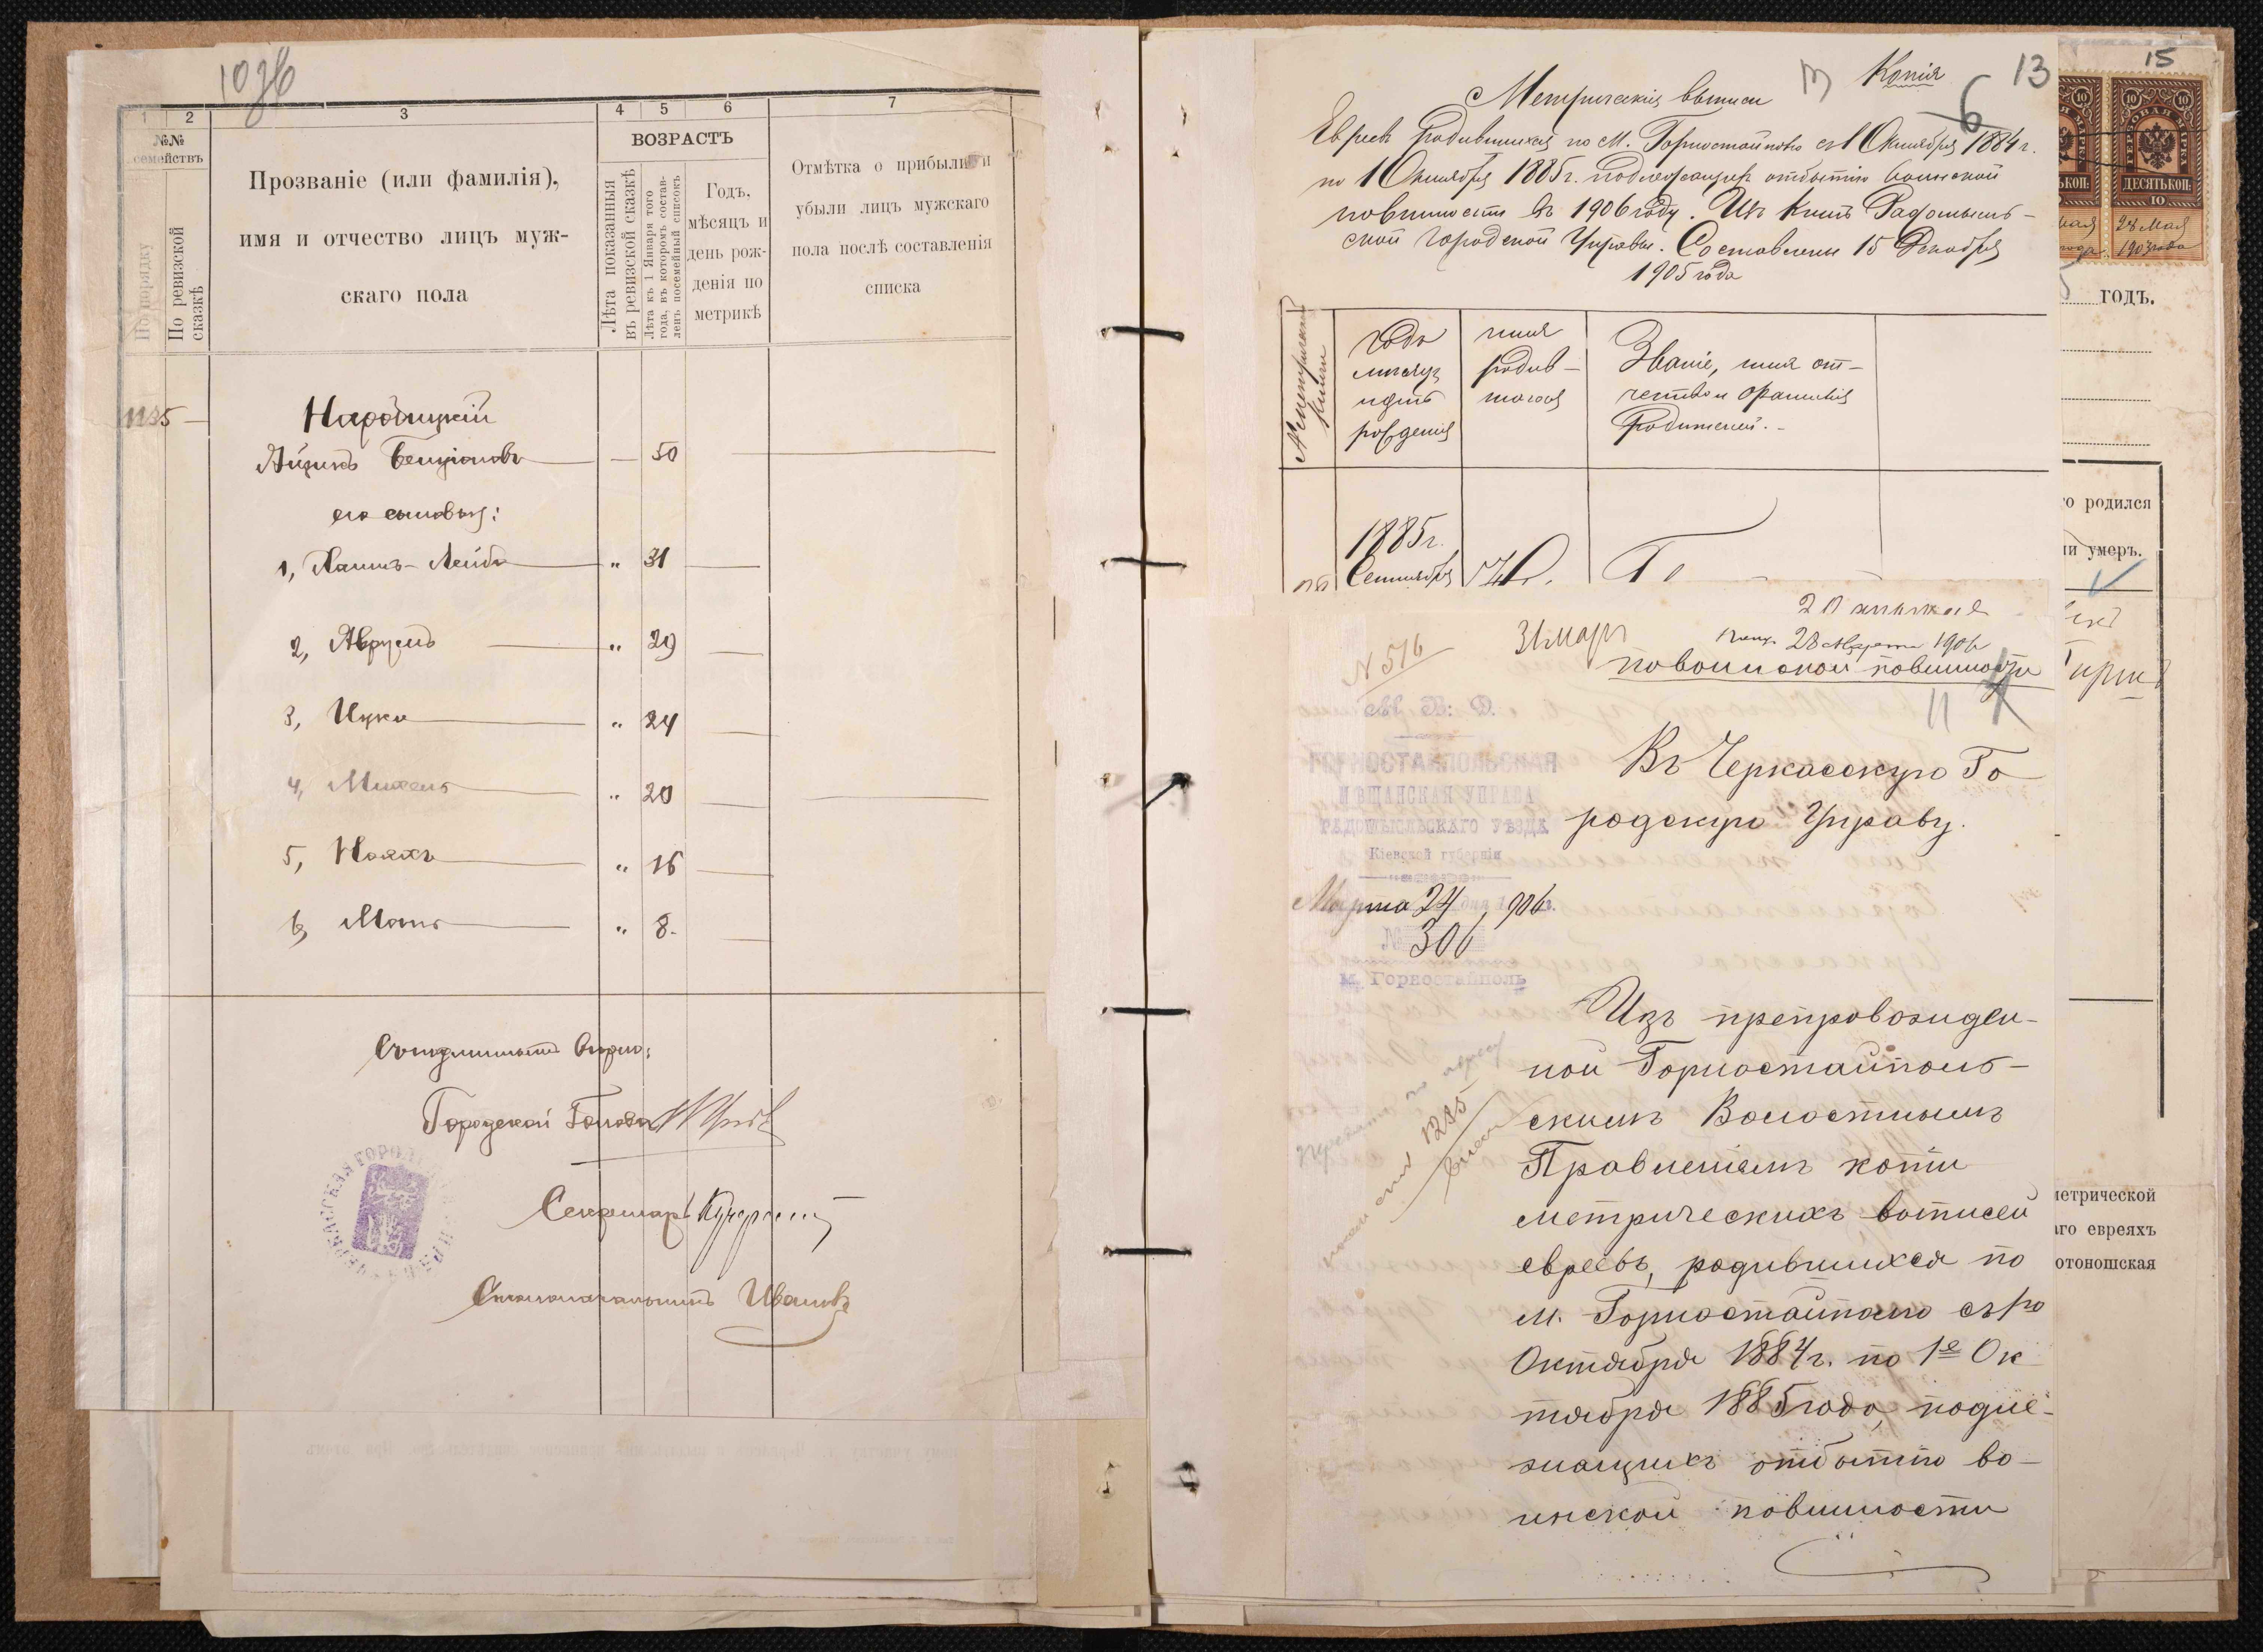 1 2 3 4 5 6 7
№№ семействъ
По порядку
По ревизской сказкѣ
Прозваніе (или фамилія),
имя и отчество лицъ муж-
скаго пола
ВОЗРАСТЪ
Лѣта показанныя въ ревизской сказкѣ
Лѣта къ 1 Января того года, въ которомъ состав- ленъ посемейный списокъ
Годъ,
мѣсяцъ и
день рож-
денія по
метрикѣ
Отмѣтка о прибыли и
убыли лицъ мужскаго
пола послѣ составленія
списка
Народицкій
Айзикъ Бенціоновъ — 50
его сыновья:
1, Хаимъ-Лейба " 31
2, Аврумъ " 29
3, Ицко " 24
4, Михель " 20
5, Ноахъ " 16
6, Моть " 8.
Городской Голова
Секретарь
Столоначальникъ Ивановъ
Копія
13
6
Метрическія выписи
Евреевъ родившихся по М. Горностайполю съ 1 Октября 1884 г.
по 1 Октября 1885 г. подлежащихъ отбытію воинской
повинности въ 1906 году. Изъ книгъ Радомысль-
ской Городской Управы. Составлены 15 Декабря
1905 года
№ метрической книги
Годъ
мѣсяцъ
и день
рожденія
имя
родив-
шагося
Званіе, имя от-
чество и фамилія
Родителей.-
1885 г.
Сентября
N 516
31 март
28 Марта 1906
по воинской повинности
11
М. В. Д.
ГОРНОСТАЙПОЛЬСКАЯ
МѢЩАНСКАЯ УПРАВА
РАДОМЫСЛЬСКАГО УѢЗДА
Кіевской губерніи
Марта 24 дня 1906 г.
№ 306
м. Горностайполь
Въ Черкасскую Го
родскую Управу.
Изъ препровожден-
ной Горностайполь-
скимъ Волостнымъ
Правленіемъ копіи
метрическихъ выписей
евреевъ, родившихся по
м. Горностайполю съ 1го
Октября 1884 г. по 1е Ок
тября 1885 года, подле-
жащихъ отбытію во-
инской повинности
1285
15
ДЕСЯТЬ КОП:
10
28 Мая
1903 года
годъ.
родился
умеръ.
метрической
евреяхъ
отоношская